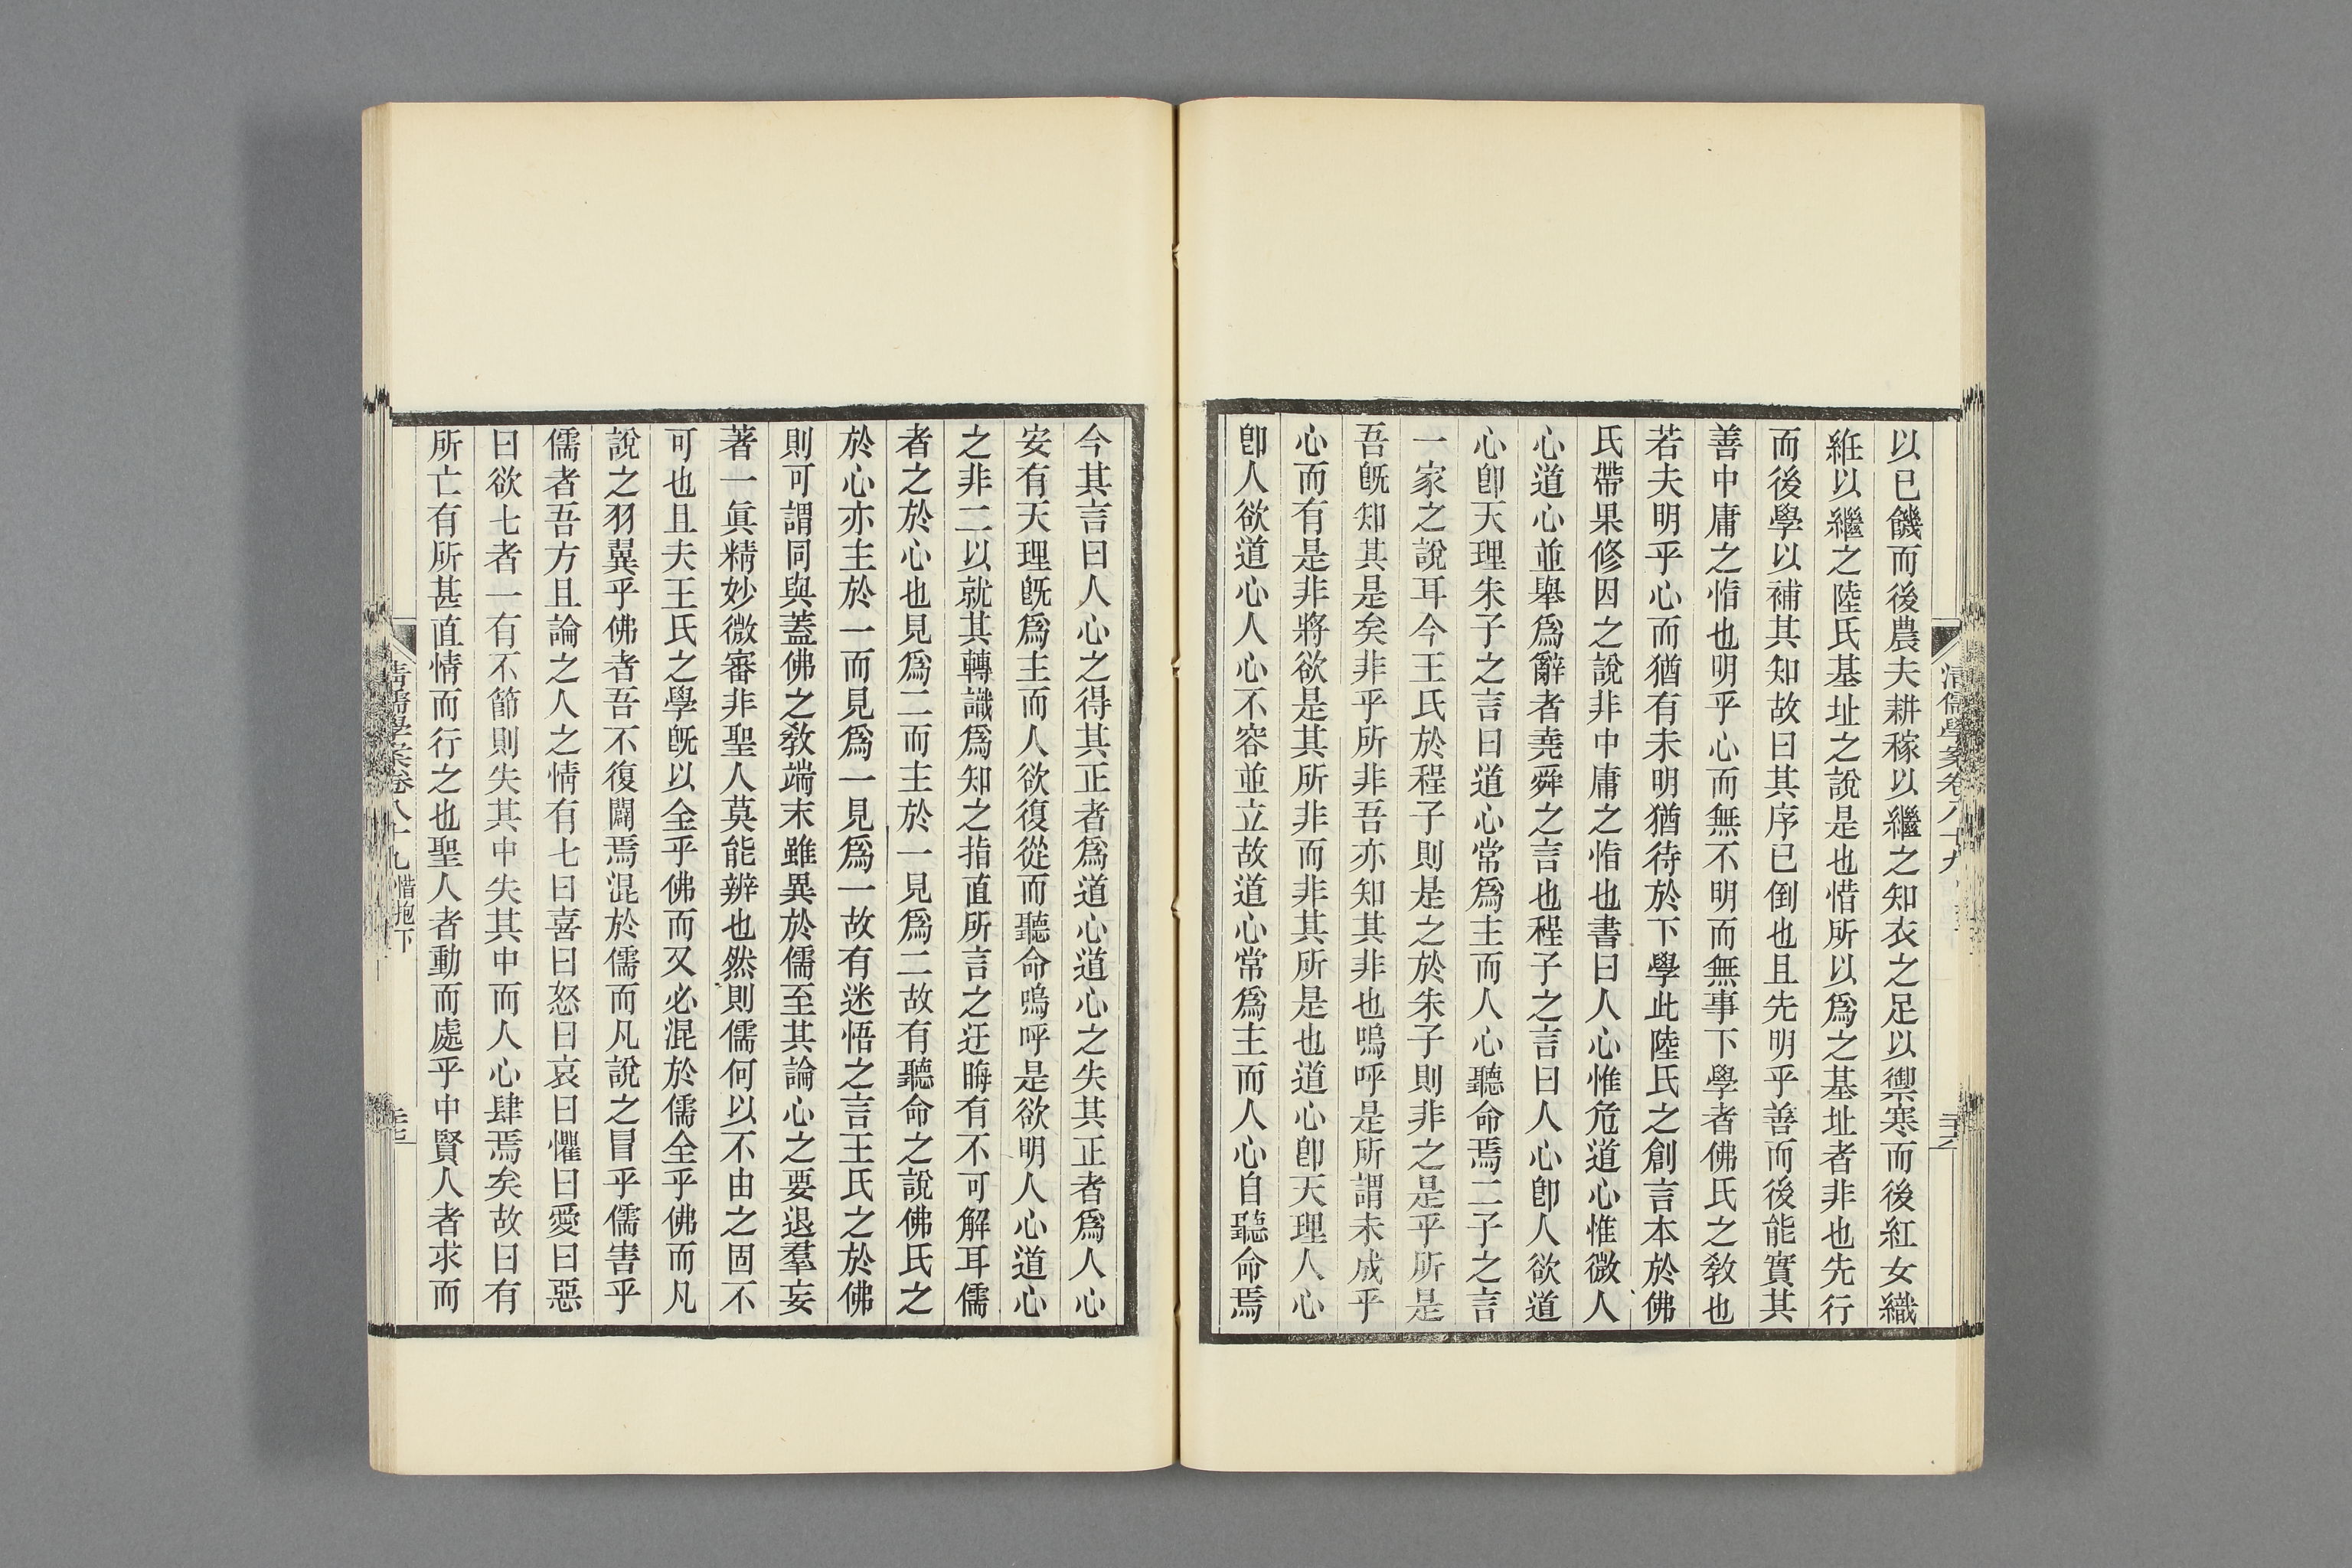 以已饑而後農夫耕稼以繼之知衣之足以禦寒而後紅女織
絍以繼之陸氏基址之說是也惜所以爲之基址者非也先行
而後學以補其知故曰其序已倒也且先明乎善而後能實其
善中庸之恉也明乎心而無不明而無事下學者佛氏之敎也
若夫明乎心而猶有未明猶待於下學此陸氏之創言本於佛
氏帶果修因之說非中庸之恉也書曰人心惟危道心惟微人
心道心並舉爲辭者堯舜之言也程子之言曰人心卽人欲道
心卽天理朱子之言曰道心常爲主而人心聽命焉二子之言
一家之說耳今王氏於程子則是之於朱子則非之是乎所是
吾旣知其是矣非乎所非吾亦知其非也嗚呼是所謂未成乎
心而有是非將欲是其所非而非其所是也道心卽天理人心
卽人欲道心人心不容並立故道心常爲主而人心自聽命焉
清儒學案卷八十九
今其言曰人心之得其正者爲道心道心之失其正者爲人心
安有天理旣爲主而人欲復從而聽命嗚呼是欲明人心道心
之非二以就其轉識爲知之指直所言之迂晦有不可解耳儒
者之於心也見爲二而主於一見爲二故有聽命之說佛氏之
於心亦主於一而見爲一見爲一故有迷悟之言王氏之於佛
則可謂同與蓋佛之敎端末雖異於儒至其論心之要退羣妄
著一眞精妙微審非聖人莫能辨也然則儒何以不由之固不
可也且夫王氏之學旣以全乎佛而又必混於儒全乎佛而凡
說之羽翼乎佛者吾不復闢焉混於儒而凡說之冒乎儒害乎
儒者吾方且論之人之情有七曰喜曰怒曰哀曰懼曰愛曰惡
曰欲七者一有不節則失其中失其中而人心肆焉矣故曰有
所亡有所甚直情而行之也聖人者動而處乎中賢人者求而
清儒學案卷八十九 惜抱下